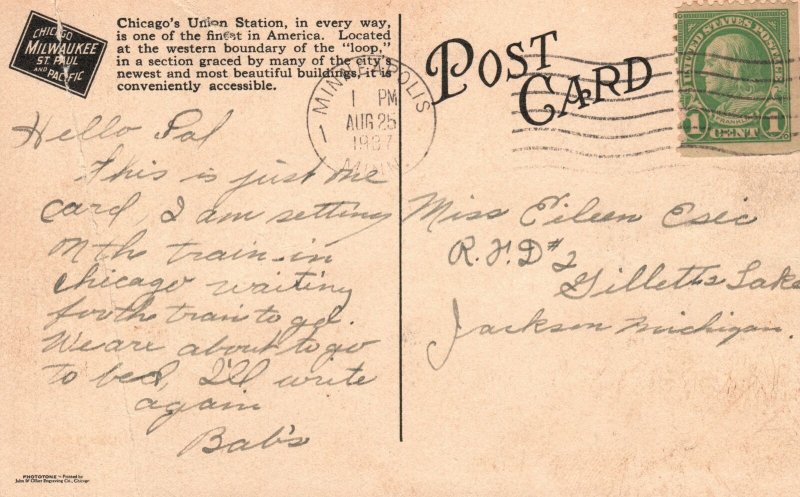 CHICAGO
MILWAUKEE
ST. PAUL
AND PACIFIC
Chicago's Union Station, in every way,
is one of the finest in America. Located
at the western boundary of the "loop,"
in a section graced by many of the city's
newest and most beautiful buildings, it is
conveniently accessible.
POST
CARD
MINNEAPOLIS
1 PM
AUG 25
1937
MINN.
UNITED STATES POSTAGE
FRANKLIN
1 CENT 1
Hello Pal
This is just one
card, I am setting
on the train in
Chicago waiting
for the train to go.
We are about to go
to bed, I'll write
again
Bab's
Miss Eileen Esic
R.F.D #2
Gilletts Lake
Jackson Michigan.
PHOTOTONE - Printed by
John & Ollier Engraving Co., Chicago